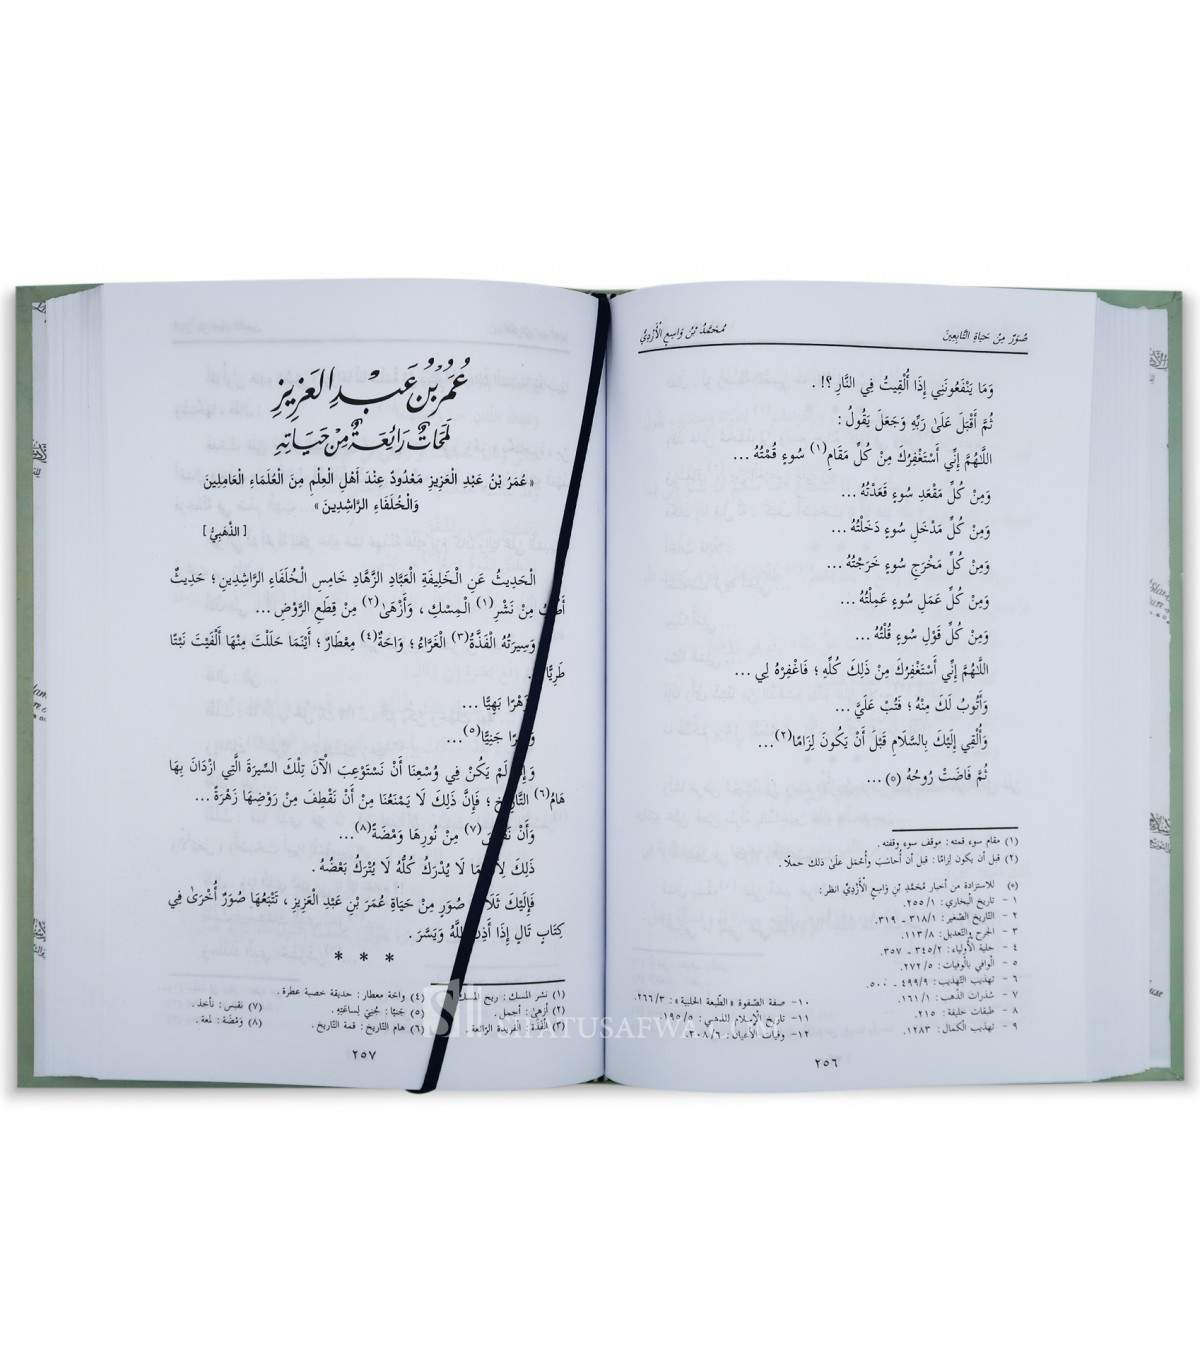 صُوَرٌ مِنْ حَيَاةِ التَّابِعِينَ
مُحَمَّدُ بْنُ وَاسِعٍ الْأَزْدِيُّ
وَمَا يَنْفَعُونَنِي إِذَا أُلْقِيتُ فِي النَّارِ ؟! .
ثُمَّ أَقْبَلَ عَلَىٰ رَبِّهِ وَجَعَلَ يَقُولُ :
اللَّهُمَّ إِنِّي أَسْتَغْفِرُكَ مِنْ كُلِّ مَقَامِ(١) سُوءٍ قُمْتُهُ ...
وَمِنْ كُلِّ مَقْعَدِ سُوءٍ قَعَدْتُهُ ...
وَمِنْ كُلِّ مَدْخَلِ سُوءٍ دَخَلْتُهُ ...
وَمِنْ كُلِّ مَخْرَجِ سُوءٍ خَرَجْتُهُ ...
وَمِنْ كُلِّ عَمَلِ سُوءٍ عَمِلْتُهُ ...
وَمِنْ كُلِّ قَوْلِ سُوءٍ قُلْتُهُ ...
اللَّهُمَّ إِنِّي أَسْتَغْفِرُكَ مِنْ ذَلِكَ كُلِّهِ ؛ فَاغْفِرْهُ لِي ...
وَأَتُوبُ لَكَ مِنْهُ ؛ فَتُبْ عَلَيَّ ...
وَأُلْقِي إِلَيْكَ بِالسَّلَامِ قَبْلَ أَنْ يَكُونَ لِزَامًا(٢)...
ثُمَّ فَاضَتْ رُوحُهُ (٥) ...
(١) مقام سوء قمته : موقف سوء وقفته .
(٢) قبل أن يكون لزامًا : قبل أن أُحاسَب وأُحمَل علىٰ ذلك حملًا .
(٥) للاستزادة من أخبار مُحَمَّدِ بْنِ وَاسِعٍ الْأَزْدِيِّ انظر :
١ - تاريخ البخاري : ٢٥٥/١.
٢ - التاريخ الصّغير : ٣١٨/١ ـ ٣١٩.
٣ - الجرح والتّعديل : ١١٣/٨.
٤ - حلية الأولياء : ٣٤٥/٢ ـ ٣٥٧.
٥ - الوافي بالوفيات : ٢٧٢/٥.
٦ - تهذيب التهذيب : ٤٩٩/٩ ـ ٥٠٠.
٧ - شذرات الذّهب : ١٦١/١.
٨ - طبقات خليفة : ٢١٥.
٩ - تهذيب الكمال : ١٢٨٣.
١٠- صفة الصّفوة «الطّبعة الحلبية» : ٢٦٦/٣.
١١- تاريخ الإسلام للذهبي : ١٩٥/٥.
١٢- وفيات الأعيان : ٣٠٨/٦.
٢٥٦
عُمَرُ بْنُ عَبْدِ العَزِيزِ
لَمَحَاتٌ رَائِعَةٌ مِنْ حَيَاتِهِ
« عُمَرُ بْنُ عَبْدِ الْعَزِيزِ مَعْدُودٌ عِنْدَ أَهْلِ الْعِلْمِ مِنَ الْعُلَمَاءِ الْعَامِلِينَ
وَالْخُلَفَاءِ الرَّاشِدِينَ »
[ الذَّهَبِيُّ ]
الْحَدِيثُ عَنِ الْخَلِيفَةِ الْعَبَّادِ الزَّهَّادِ خَامِسِ الْخُلَفَاءِ الرَّاشِدِينَ ؛ حَدِيثٌ
مِنْ نَشْرِ(١) الْمِسْكِ ، وَأَزْهَىٰ(٢) مِنْ قِطَعِ الرَّوْضِ ...
وَسِيرَتُهُ الْفَذَّةُ(٣) الْغَرَّاءُ ؛ وَاحَةٌ(٤) مِعْطَارٌ ؛ أَيْنَمَا حَلَلْتَ مِنْهَا أَلْفَيْتَ نَبْتًا
طَرِيًّا
بَهِيًّا ...
جَنِيًّا(٥)...
لَمْ يَكُنْ فِي وُسْعِنَا أَنْ نَسْتَوْعِبَ الْآنَ تِلْكَ السِّيرَةَ الَّتِي ازْدَانَ بِهَا
هَامُ(٦) التَّارِيخِ ؛ فَإِنَّ ذَلِكَ لَا يَمْنَعُنَا مِنْ أَنْ نَقْطِفَ مِنْ رَوْضِهَا زَهْرَةً ...
وَأَنْ (٧) مِنْ نُورِهَا وَمْضَةً(٨)...
ذَلِكَ لَا يُدْرَكُ كُلُّهُ لَا يُتْرَكُ بَعْضُهُ .
فَإِلَيْكَ صُوَرٍ مِنْ حَيَاةِ عُمَرَ بْنِ عَبْدِ الْعَزِيزِ ، تَتْبَعُهَا صُوَرٌ أُخْرَىٰ فِي
كِتَابٍ تَالٍ إِذَا أَذِنَ اللَّهُ وَيَسَّرَ .
* * *
(١) نشر المسك : ريح المسك
(٢) أَزهىٰ : أجمل .
(٣) الْفَذَّة : الفريدة الرّائعة .
(٤) واحة معطار : حديقة خصبة عطرة .
(٥) جَنيًّا : جُنِيَ لِساعَتِهِ .
(٦) هام التّاريخ : قمة التّاريخ .
(٧) نقبس : نأخذ .
(٨) وَمْضَة : لمعة .
٢٥٧
SIFATUSAFWA.COM